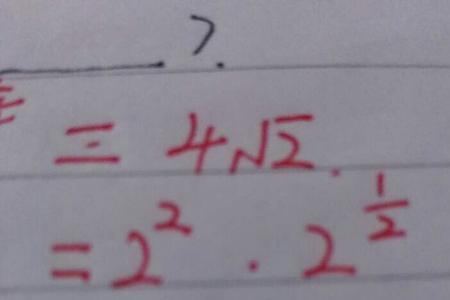 ?.
= 4√2.
= 2² · 2^(1/2)